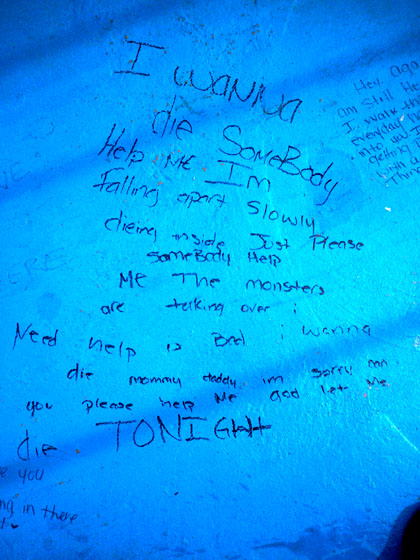 I wanna
die SomeBody
Help Me Im
falling apart slowly
dieing inside Just Please
SomeBody Help
Me The monsters
are talking over i
Need help is Bad i wanna
die mommy daddy im sorry
you please help Me god let Me
die TONIGHt
you
ng in there
Hey
am still He
I want
everyday
into
getting
with
Thing